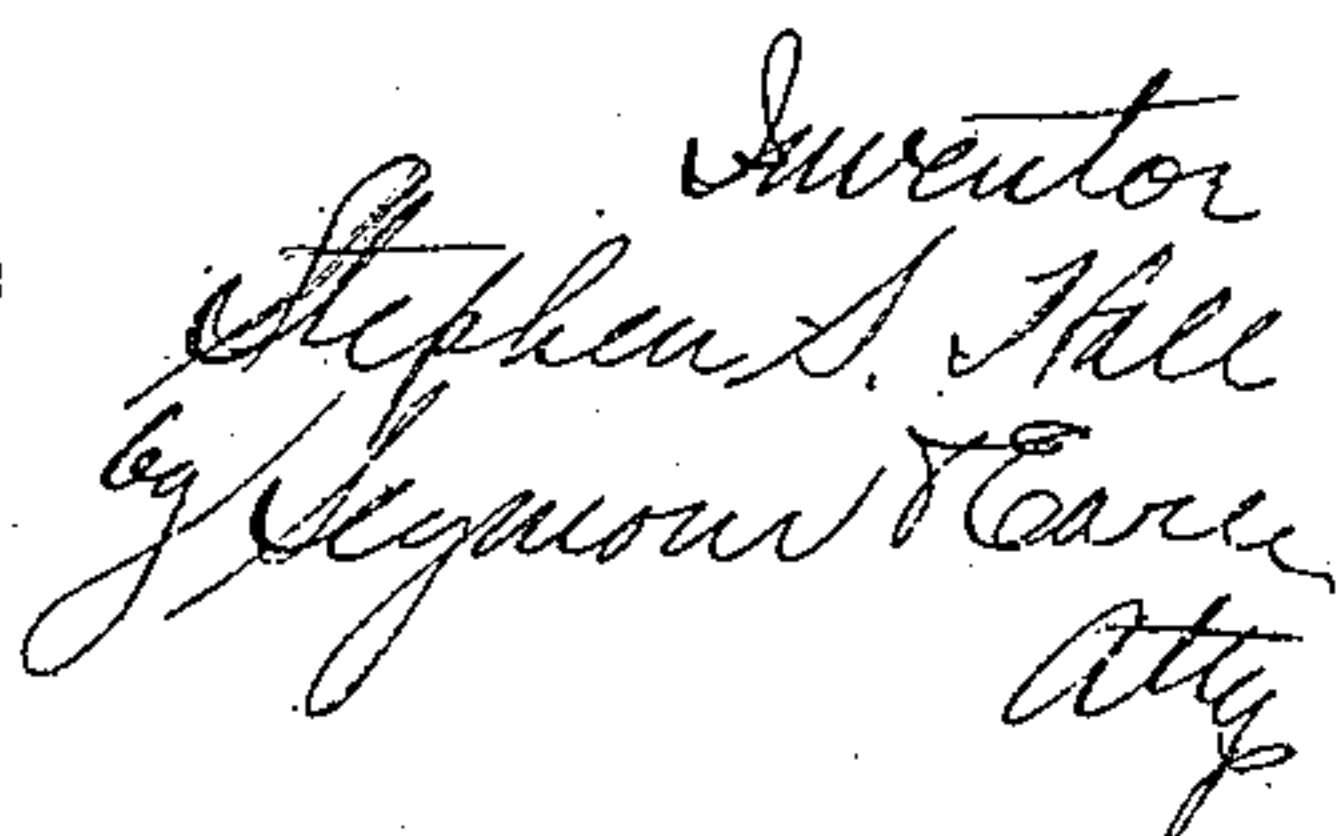 Inventor
Stephen S. Hall
by Seymour & Earle
Atty